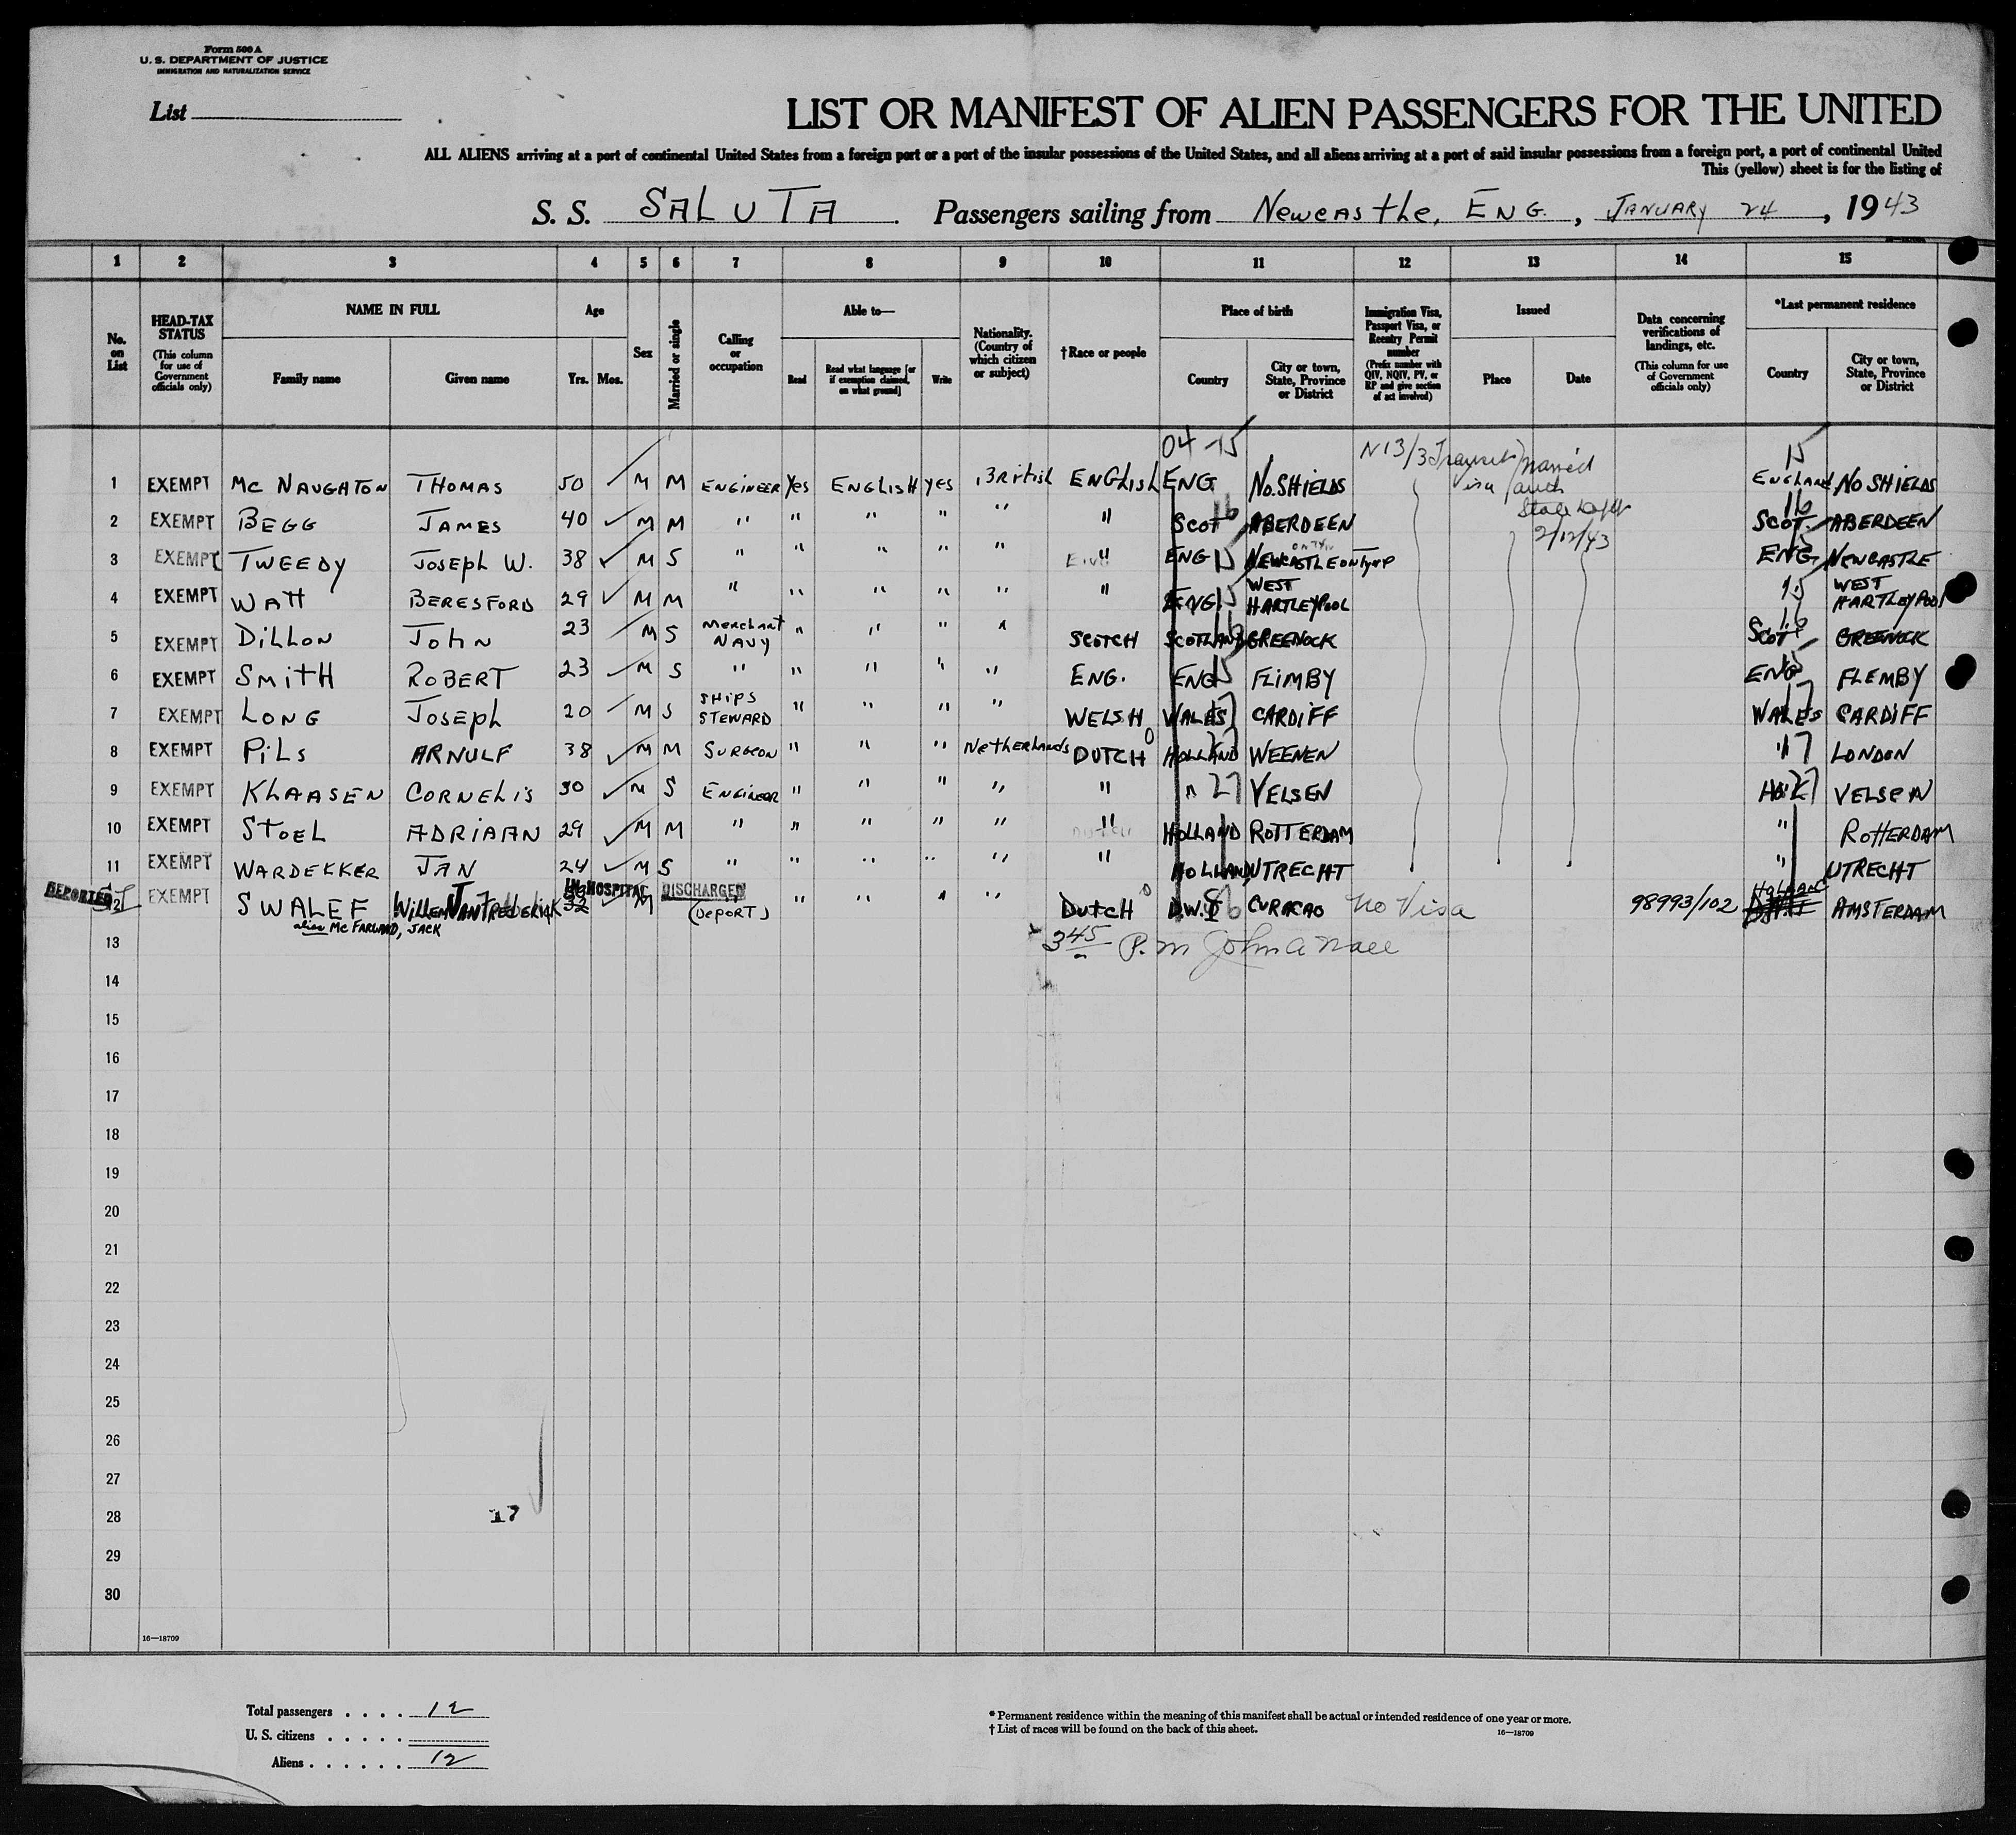 Form 500 A
U. S. DEPARTMENT OF JUSTICE
IMMIGRATION AND NATURALIZATION SERVICE
List
LIST OR MANIFEST OF ALIEN PASSENGERS FOR THE UNITED
ALL ALIENS arriving at a port of continental United States from a foreign port or a port of the insular possessions of the United States, and all aliens arriving at a port of said insular possessions from a foreign port, a port of continental United
This (yellow) sheet is for the listing of
S. S. SALUTA Passengers sailing from Newcasthe, ENG., JANUARY 24, 1943
1 2 3 4 5 6 7 8 9 10 11 12 13 14 15
No. on List
HEAD-TAX STATUS (This column for use of Government officials only)
NAME IN FULL
Family name Given name
Age
Yrs. Mos.
Sex
Married or single
Calling or occupation
Able to—
Read Read what language [or if exemption claimed, on what ground] Write
Nationality. (Country of which citizen or subject)
†Race or people
Place of birth
Country City or town, State, Province or District
Immigration Visa, Passport Visa, or Reentry Permit number (Prefix number with QIV, NQIV, PV, or RP and give section of act involved)
Issued
Place Date
Data concerning verifications of landings, etc. (This column for use of Government officials only)
*Last permanent residence
Country City or town, State, Province or District
04 -15 N 13/3 Transit visa 15
1 EXEMPT Mc NAUGHTON THOMAS 50 M M ENGINEER Yes ENGLISH yes British ENGLISH ENG No. SHIELDS ENGLAND NO SHIELDS
State Dept
2/12/43
2 EXEMPT BEGG JAMES 40 M M " " " " " " SCOT 16 ABERDEEN 16 SCOT. ABERDEEN
3 EXEMPT TWEEDY JOSEPH W. 38 M S " " " " " " ENG 15 NEWCASTLE ON TYNE ENG. NEWCASTLE
4 EXEMPT WATT BERESFORD 29 M M " " " " " " ENG. 15 WEST HARTLEYPOOL 15 WEST HARTLEYPOOL
5 EXEMPT DILLON JOHN 23 M S merchant NAVY " " " " SCOTCH SCOTLAND GREENOCK SCOT GREENOCK
6 EXEMPT SMITH ROBERT 23 M S " " " " " ENG. ENG 15 FLIMBY ENG 15 FLEMBY
7 EXEMPT LONG JOSEPH 20 M S SHIPS STEWARD " " " " WELSH WALES 17 CARDIFF WALES 17 CARDIFF
8 EXEMPT PILS ARNULF 38 M M SURGEON " " " Netherlands DUTCH HOLLAND 27 WEENEN " 17 LONDON
9 EXEMPT KLAASEN CORNELIS 30 M S ENGINEER " " " " " " 27 VELSEN HOL 27 VELSEN
10 EXEMPT STOEL ADRIAAN 29 M M " " " " " " HOLLAND ROTTERDAM " ROTTERDAM
11 EXEMPT WARDEKKER JAN 24 M S " " " " " " HOLLAND UTRECHT " UTRECHT
DEPORTED 12 EXEMPT SWALEF Willem JAN FREDERIK 32 IN HOSPITAL M DISCHARGED " (DEPORT) " " " " DUTCH D.W.I CURACAO No Visa 98993/102 HOLLAND AMSTERDAM
alias Mc FARLAND, JACK
13 3 45 P. m
14
15
16
17
18
19
20
21
22
23
24
25
26
27
28 17
29
30
16—18709
Total passengers . . . . 12
U. S. citizens . . . . .
Aliens . . . . . . 12
* Permanent residence within the meaning of this manifest shall be actual or intended residence of one year or more.
† List of races will be found on the back of this sheet. 16—18709